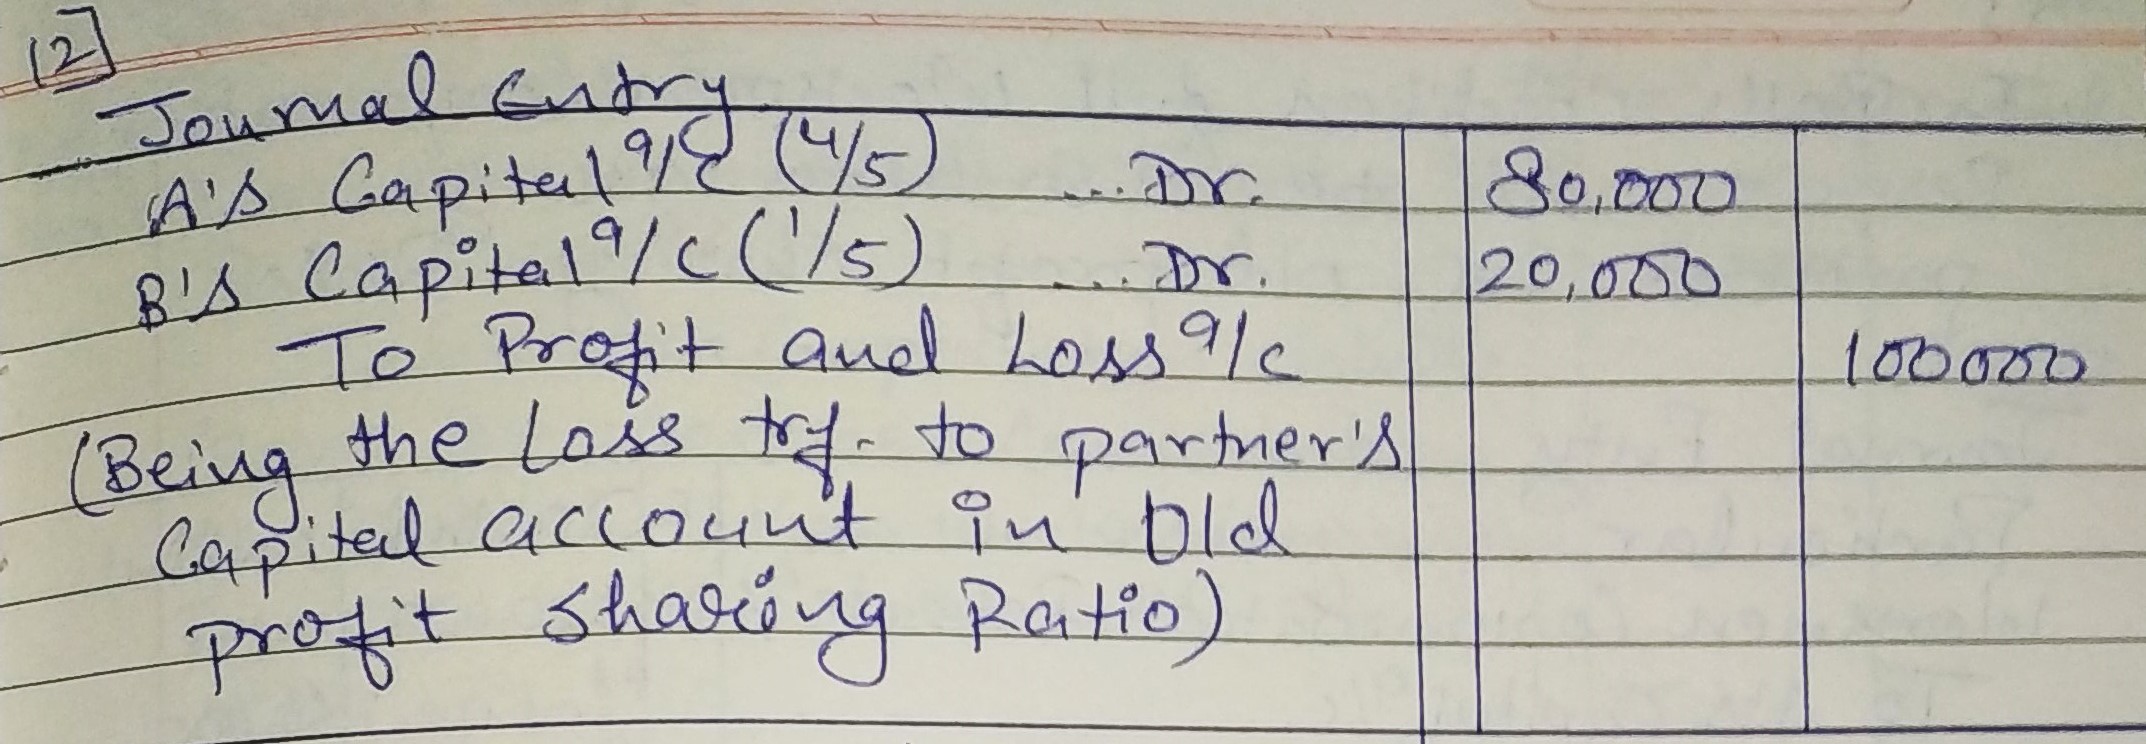 12]
Journal Entry
A's Capital a/c (4/5) ... Dr. 80,000
B's Capital a/c (1/5) ... Dr. 20,000
To Profit and Loss a/c 100000
(Being the Loss trf. to partner's
Capital account in Old
profit sharing Ratio)